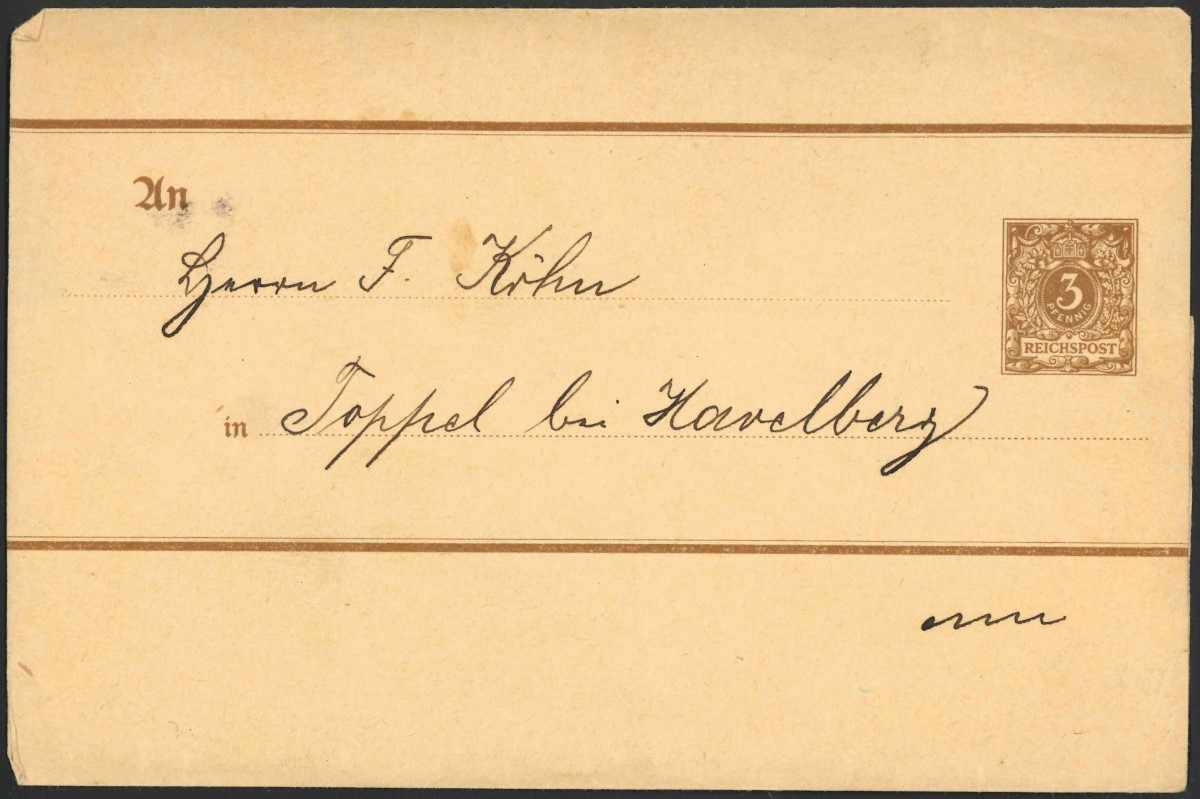 An
Herrn F. Köhn
3
PFENNIG
REICHSPOST
in Toppel bei Havelberg